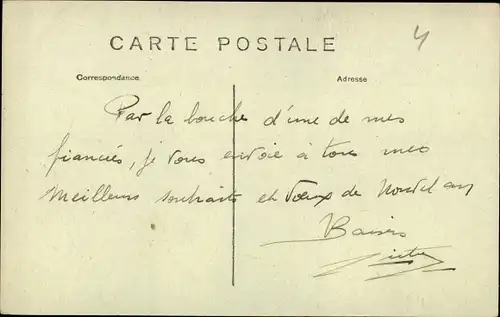 4
CARTE POSTALE
Correspondance
Adresse
Par la bouche d'une de mes
fiancées, je vous envoie à tous mes
Meilleurs souhaits et Vœux de Nouvel an
Baisers